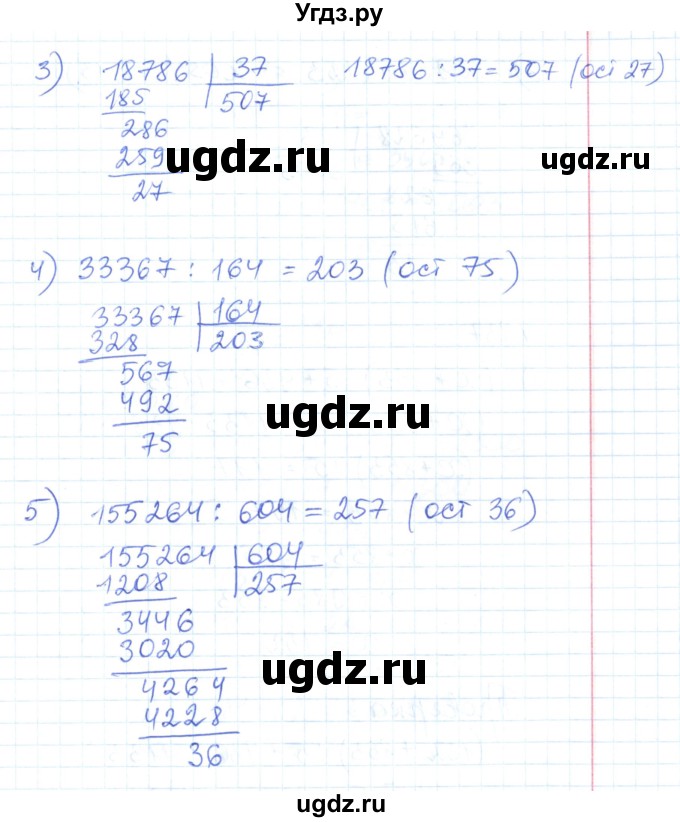 Угдз.ру
3) 18786 | 37 18786 : 37 = 507 (ост 27)
185 507
286
259
27
ugdz.ru
ugdz.ru
4) 33367 : 164 = 203 (ост 75)
33367 | 164
328 203
567
492
75
ugdz.ru
ugdz.ru
5) 155264 : 604 = 257 (ост 36)
155264 | 604
1208 257
3446
3020
4264
4228
36
ugdz.ru
ugdz.ru
ugdz.ru